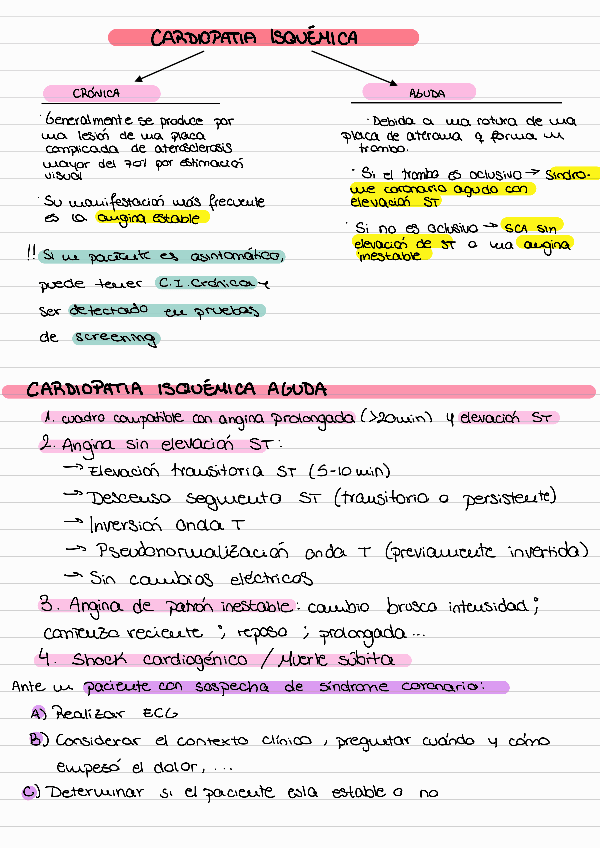 CARDIOPATIA ISQUÉMICA
CRÓNICA
· Generalmente se produce por
una lesión de una placa
complicada de aterosclerosis
mayor del 70% por estimación
visual
· Su manifestación más frecuente
es la angina estable
!! Si un paciente es asintomático,
puede tener C.I. Crónica y
ser detectado en pruebas
de screening
AGUDA
· Debida a una rotura de una
placa de ateroma q forma un
trombo.
· Si el trombo es oclusivo → Síndro-
me coronario agudo con
elevación ST
· Si no es oclusivo → SCA sin
elevación de ST o una angina
inestable
CARDIOPATIA ISQUÉMICA AGUDA
1. cuadro compatible con angina prolongada (>20min) y elevación ST
2. Angina sin elevación ST:
→ Elevación transitoria ST (5-10 min)
→ Descenso segmento ST (transitorio o persistente)
→ Inversión onda T
→ Pseudonormalización onda T (previamente invertida)
→ Sin cambios eléctricos
3. Angina de patrón inestable: cambio brusco intensidad;
comienzo reciente; reposo; prolongada...
4. Shock cardiogénico / Muerte súbita
Ante un paciente con sospecha de síndrome coronario:
A) Realizar ECG
B) Considerar el contexto clínico, preguntar cuándo y cómo
empesó el dolor, ...
C) Determinar si el paciente esta estable o no